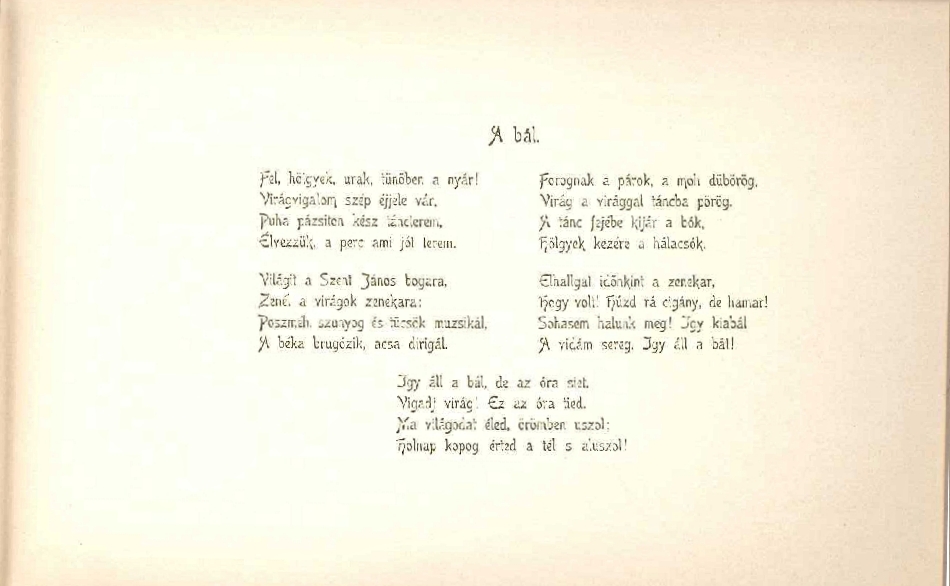 A bál.
Fel, hölgyek, urak, tünőben a nyár!
Virágvigalom szép éjjele vár,
Puha pázsiton kész táncterem,
Élvezzük, a perc ami jól terem.
Világít a Szent János bogara,
Zenél a virágok zenekara:
Poszméh, szunyog és tücsök muzsikál,
A béka brugózik, acsa dirigál.
Forognak a párok, a moh dübörög,
Virág a virággal táncba pörög.
A tánc fejébe kijár a bók,
Hölgyek kezére a hálacsók.
Elhallgat időnkint a zenekar,
Hogy volt! Húzd rá cigány, de hamar!
Sohasem halunk meg! Igy kiabál
A vidám sereg. Igy áll a bál!
Igy áll a bál, de az óra siet.
Vigadj virág! Ez az óra tied.
Ma világodat éled, örömben uszol;
Holnap kopog érted a tél s aluszol!